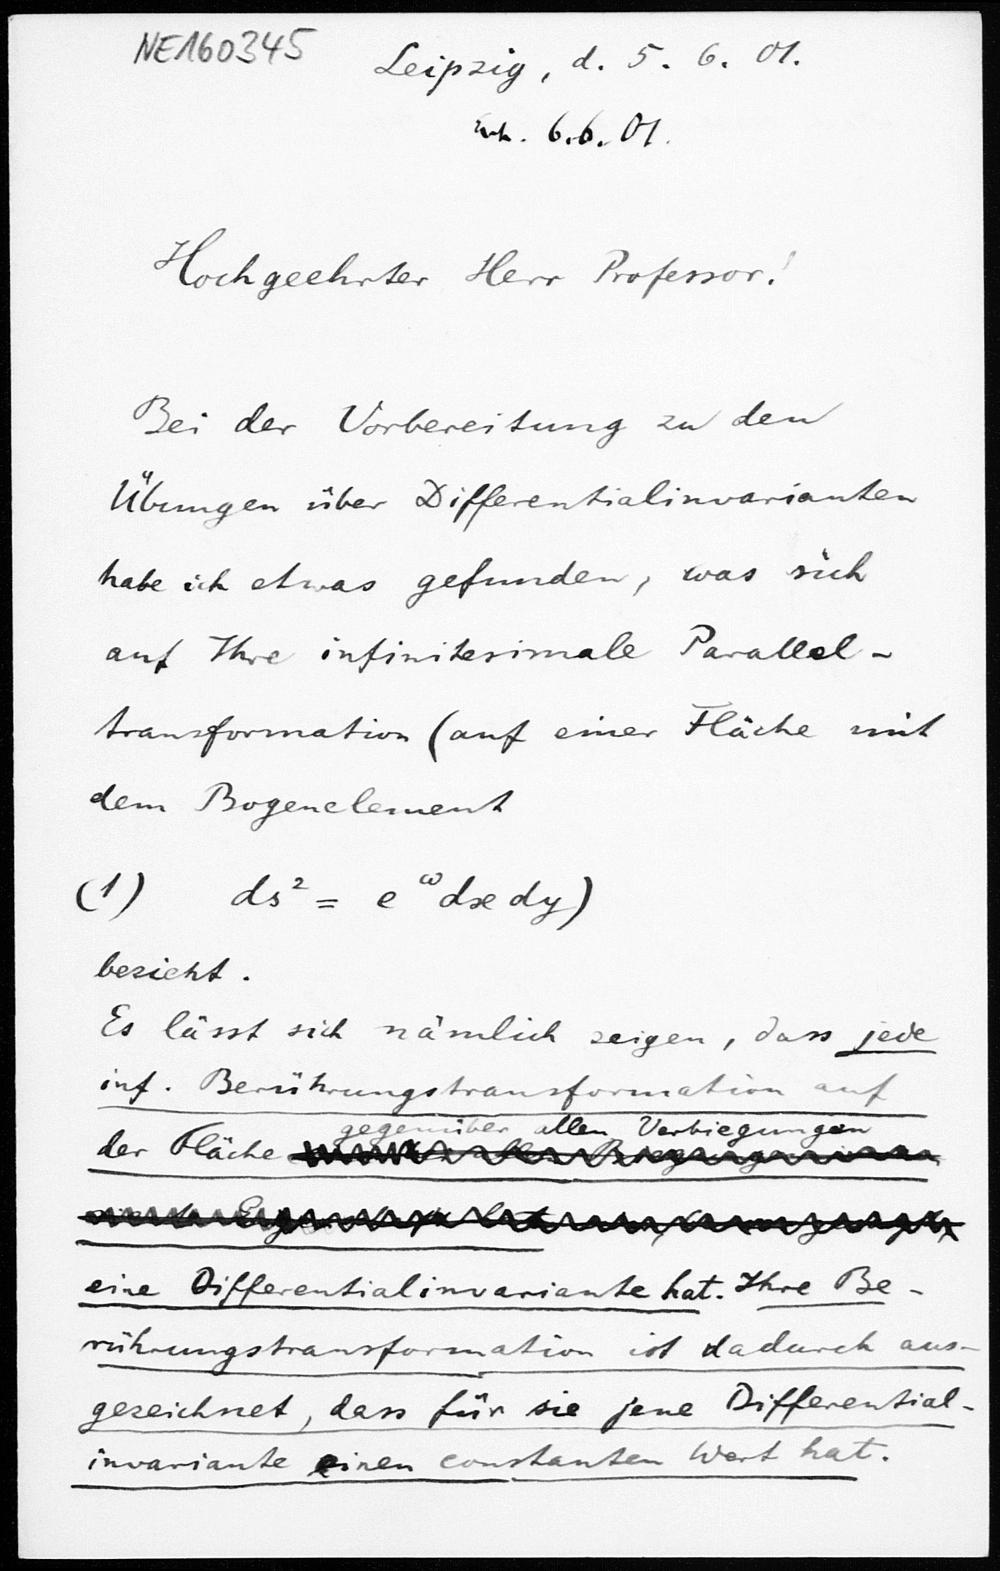 NE160345
Leipzig, d. 5. 6. 01.
Erh. 6.6.01.
Hochgeehrter Herr Professor!
Bei der Vorbereitung zu den
Übungen über Differentialinvarianten
habe ich etwas gefunden, was sich
auf Ihre infinitesimale Parallel-
transformation (auf einer Fläche mit
dem Bogenelement
(1) ds² = e^ω dx dy)
bezieht.
Es lässt sich nämlich zeigen, dass jede
inf. Berührungstransformation auf
gegenüber allen Verbiegungen
der Fläche
eine Differentialinvariante hat. Ihre Be-
rührungstransformation ist dadurch aus-
gezeichnet, dass für sie jene Differential-
invariante einen constanten Wert hat.